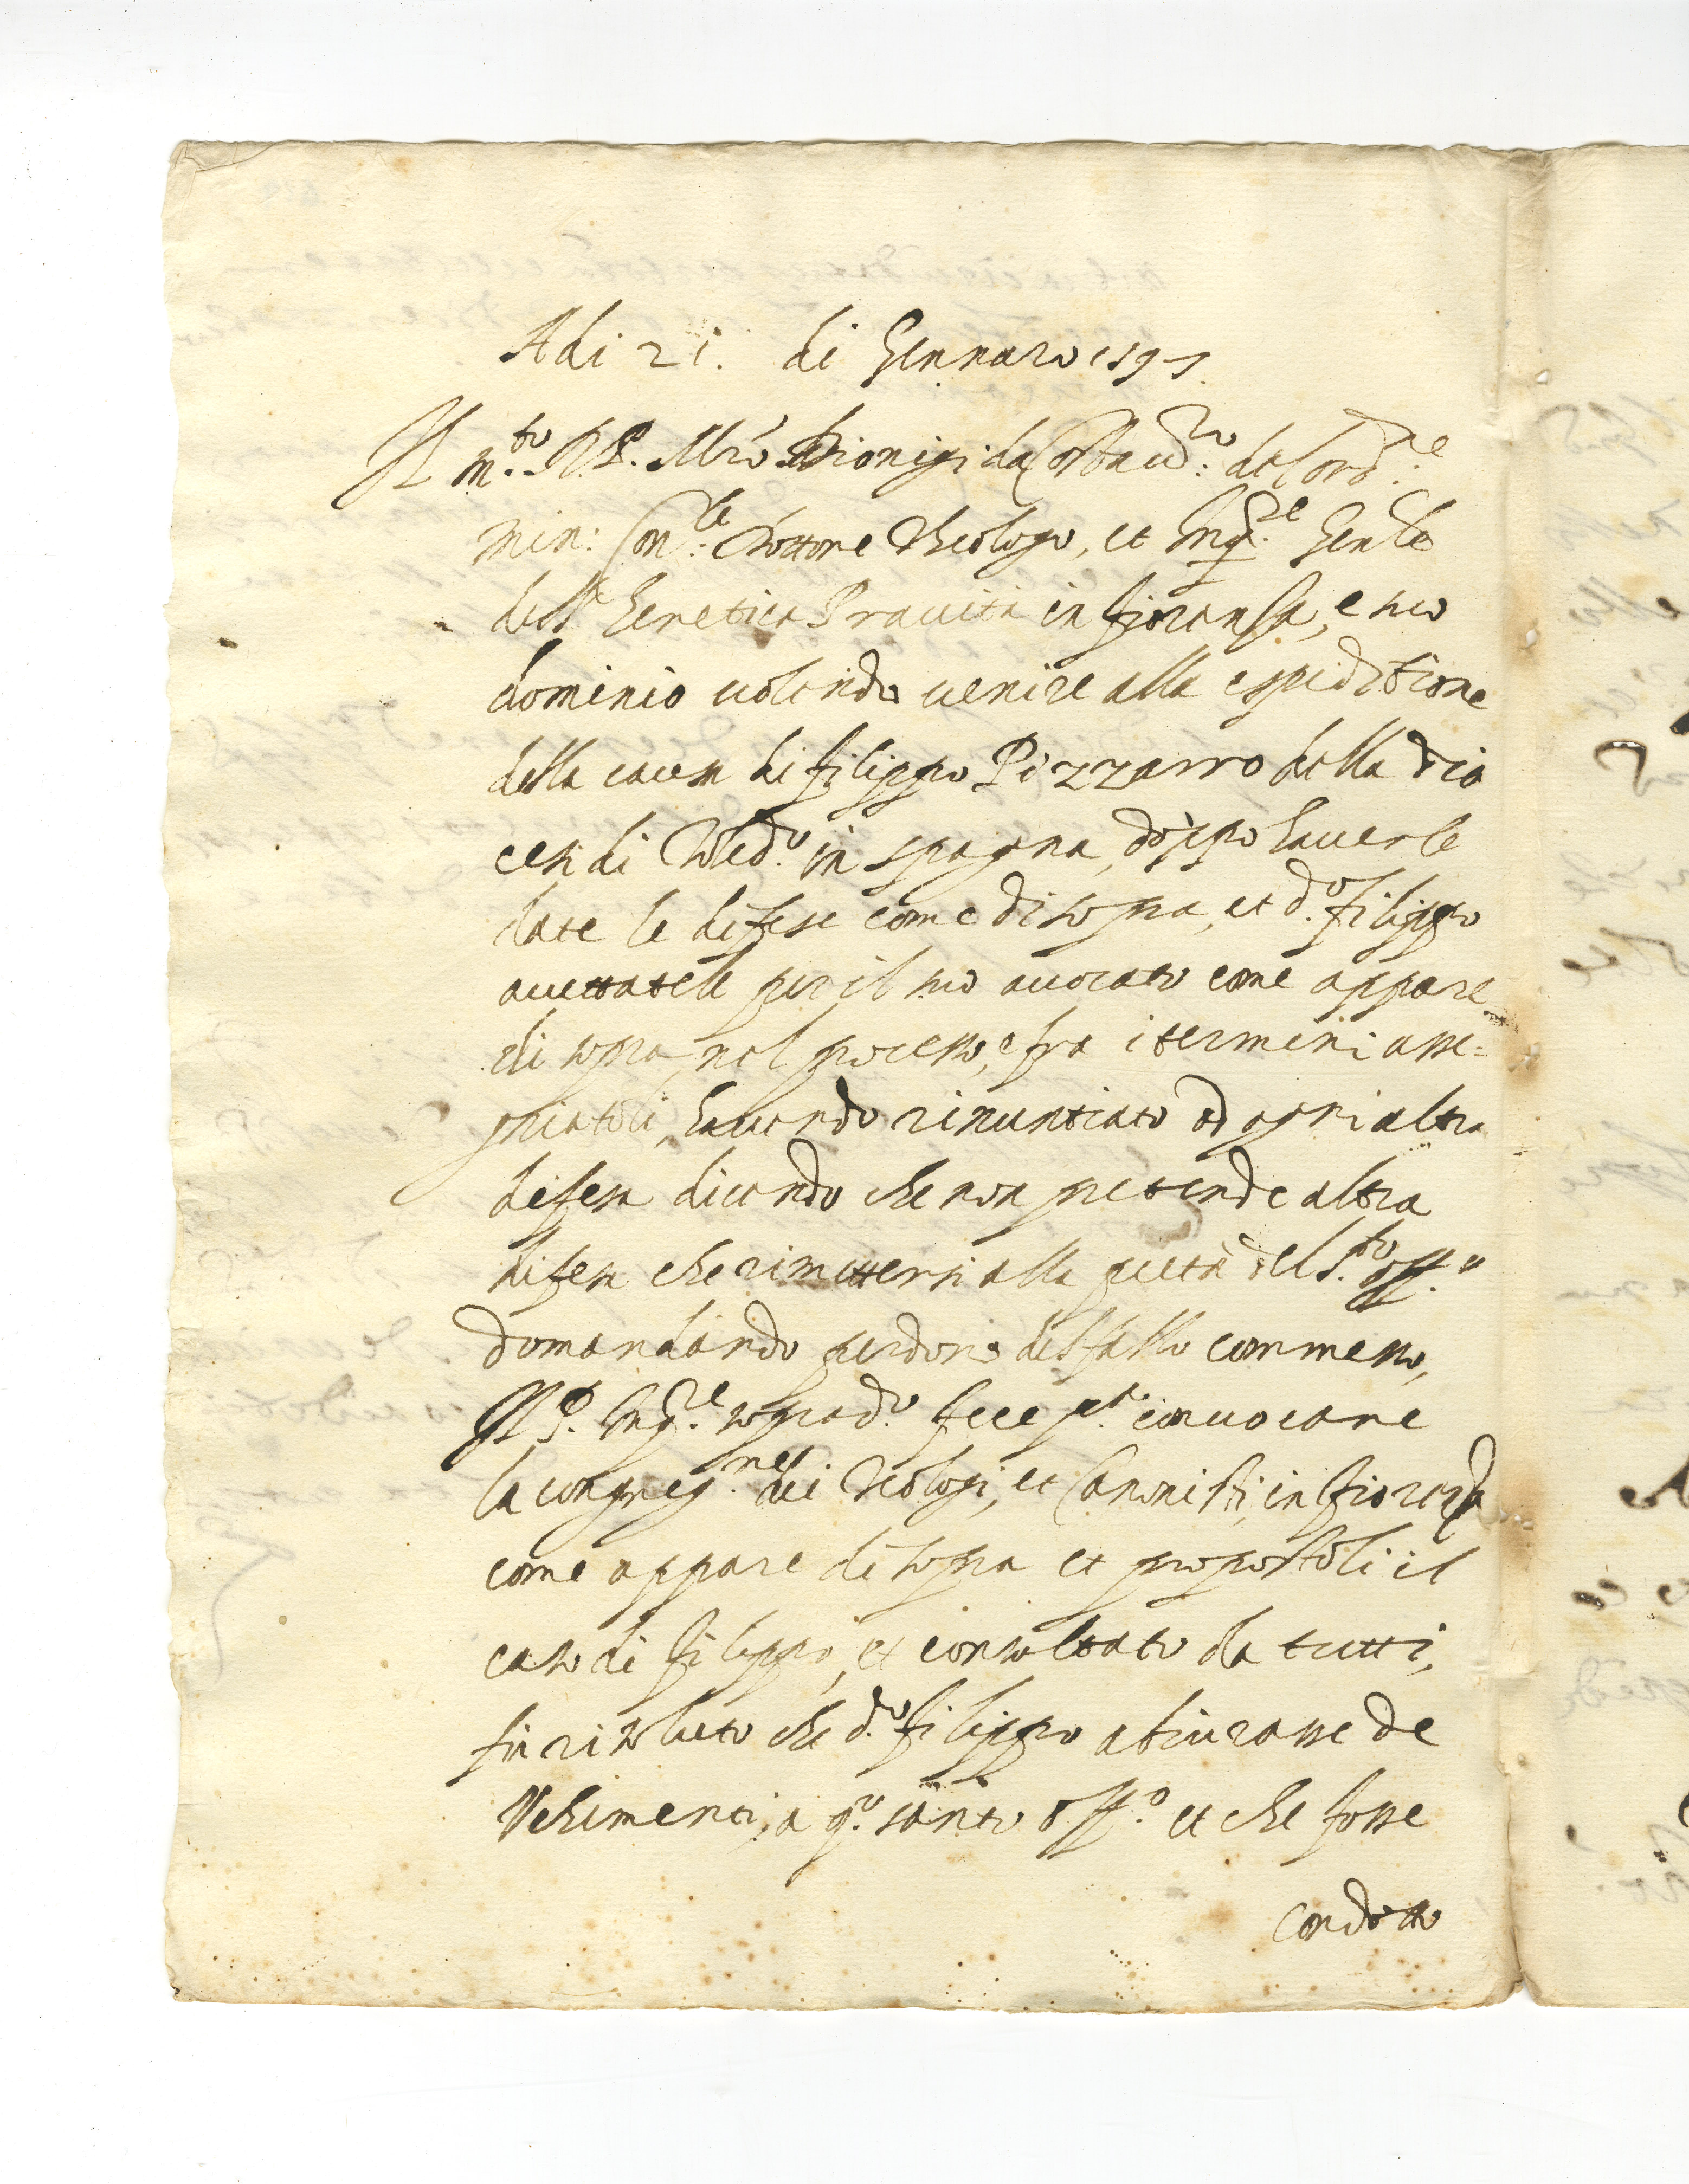 Adi 21. di Gennaro 1595.
Il m.to R. P. Mro Dionigi da Costacc.ro del ord.e
min: Con.le Dottore Theologo, et Inq.re Gen.le
dell'heretica Pravità in fioransa, e suo
dominio uolendo uenire alla espeditione
della causa di filippo Pizzarro della dio
cesi di Toled.o in spagna, doppo hauerle
date le difese come di sopra, et d.o filippo
accettatele per il suo auocato come appare
di sopra, nel processo, e fra i termini asse=
gniatoli, hauendo rinuntiato ad ogni altra
difesa dicendo che non pretende altra
difesa che rimettersi alla pietà del S.to off.o
domandando perdono del fallo commesso,
Il P. Inq.re soprad.o fece p.a conuocare
la congreg.ne dei Teologi, et Canonisti, in fiorenza
come appare di sopra et propostoli il
caso di filippo, et consoltato da tutti,
fù risoluto che d.o filippo abiurasse de
Vehimenti, a q.o santo off.o et che fosse
condotto